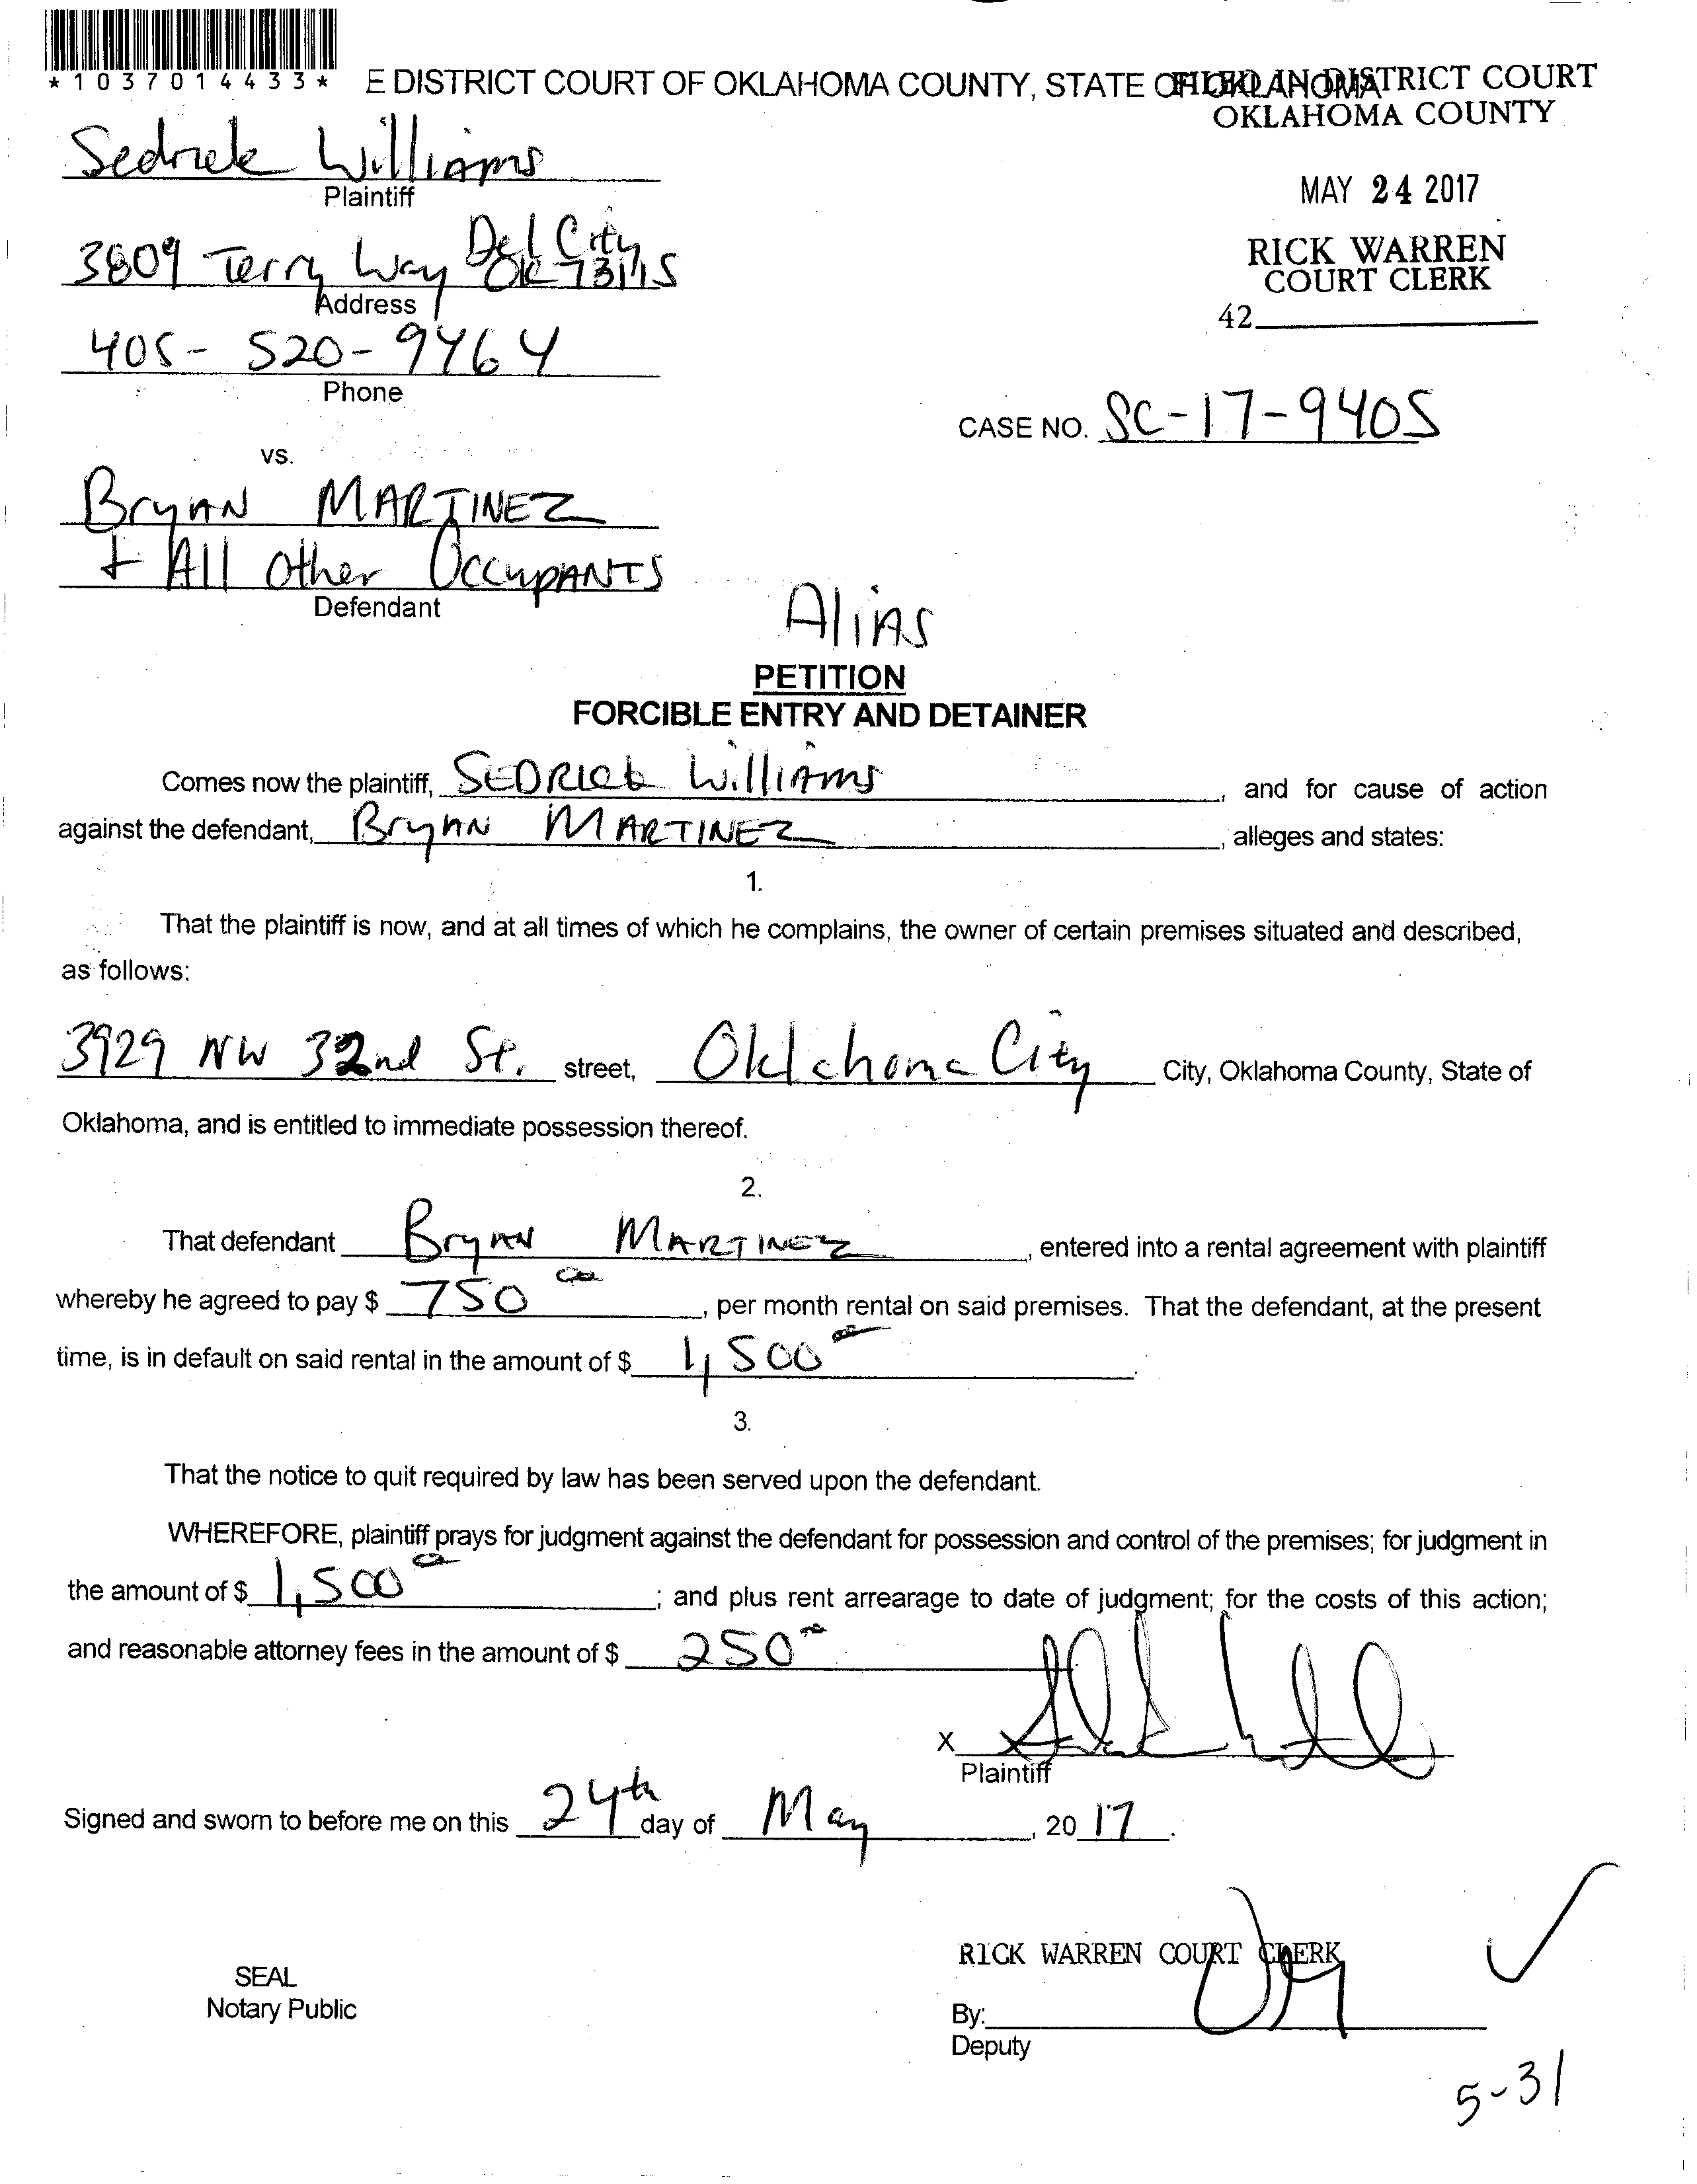 *1037014433*
E DISTRICT COURT OF OKLAHOMA COUNTY, STATE OF OKLAHOMA
FILED IN DISTRICT COURT
OKLAHOMA COUNTY
MAY 24 2017
RICK WARREN
COURT CLERK
42
Sedrick Williams
Plaintiff
3809 Terry Way Del City
OK 73115
Address
405-520-9464
Phone
CASE NO. SC-17-9405
vs.
Bryan MARTINEZ
+ All Other Occupants
Defendant
Alias
PETITION
FORCIBLE ENTRY AND DETAINER
Comes now the plaintiff, SEDRICK Williams, and for cause of action
against the defendant, Bryan MARTINEZ, alleges and states:
1.
That the plaintiff is now, and at all times of which he complains, the owner of certain premises situated and described,
as follows:
3929 NW 32nd St. street, Oklahoma City City, Oklahoma County, State of
Oklahoma, and is entitled to immediate possession thereof.
2.
That defendant Bryan MARTINEZ, entered into a rental agreement with plaintiff
whereby he agreed to pay $ 750 00, per month rental on said premises. That the defendant, at the present
time, is in default on said rental in the amount of $ 1,500 00.
3.
That the notice to quit required by law has been served upon the defendant.
WHEREFORE, plaintiff prays for judgment against the defendant for possession and control of the premises; for judgment in
the amount of $ 1,500 00; and plus rent arrearage to date of judgment; for the costs of this action;
and reasonable attorney fees in the amount of $ 250 00
X
Plaintiff
Signed and sworn to before me on this 24th day of May, 2017.
RICK WARREN COURT CLERK
SEAL
Notary Public
By:
Deputy
5-31